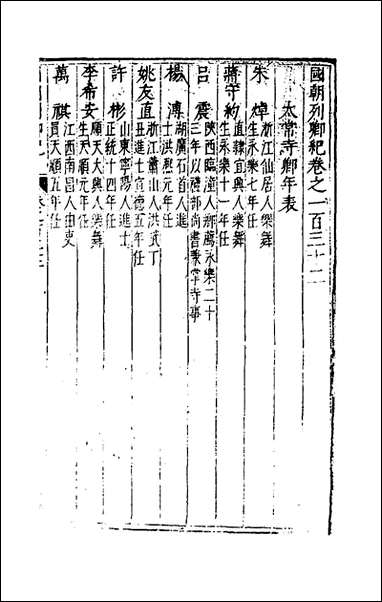 國朝列卿紀卷之一百三十二
太常寺卿年表
朱焯 浙江仙居人樂舞
生永樂七年任
蔣守約 直隸宜興人樂舞
生永樂十一年任
呂震 陝西臨潼人鄉薦永樂二十
三年以禮部尚書兼掌寺事
楊溥 湖廣石首人進
士洪熙元年任
姚友直 浙江蕭山人洪武丁
丑進士宣德五年任
許彬 山東寧陽人進士
正統十四年任
李希安 順天大興人樂舞
生天順元年任
萬祺 江西南昌人由吏
員天順五年任